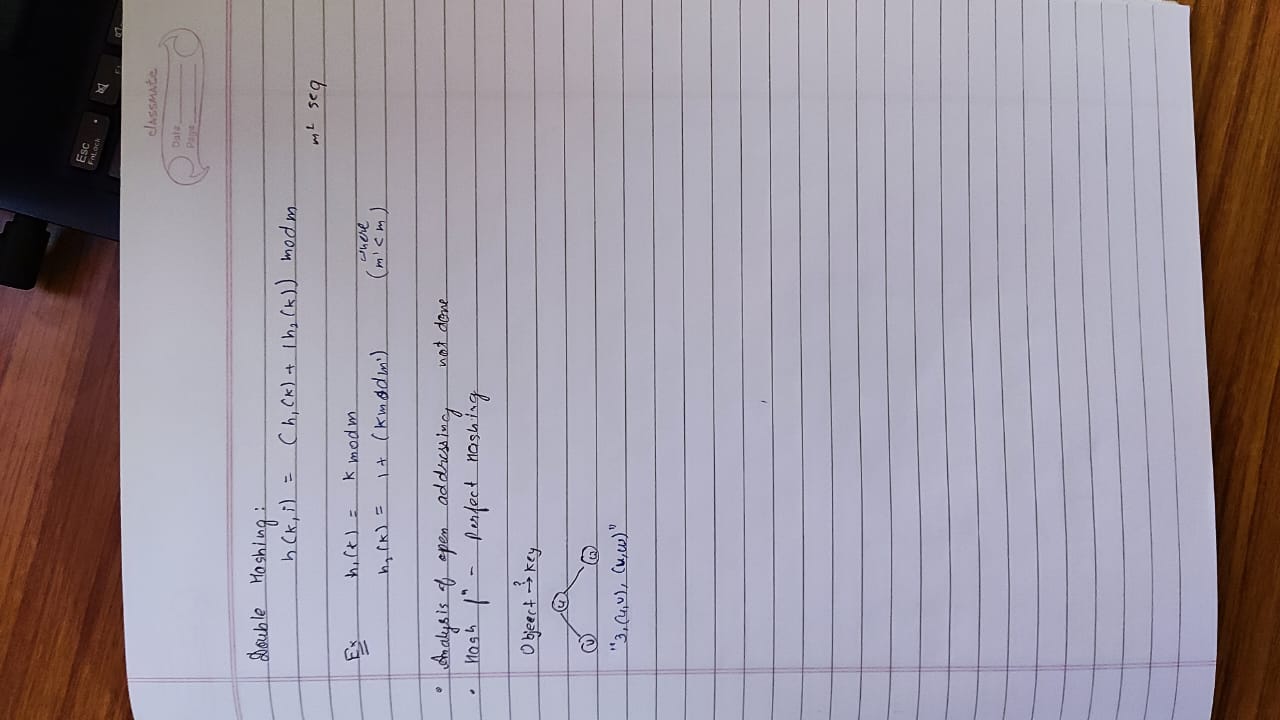 classmate
Date
Page
Double Hashing:
h(k,i) = (h₁(k) + i h₂(k)) mod m
m² seq
Ex h₁(k) = k mod m
h₂(k) = 1 + (k mod m') (where m' < m)
• Analysis of open addressing not done
• Hash fⁿ - Perfect Hashing
Object →? key
u
v w
"3,(u,v), (u,w)"
Esc
FnLock
F1